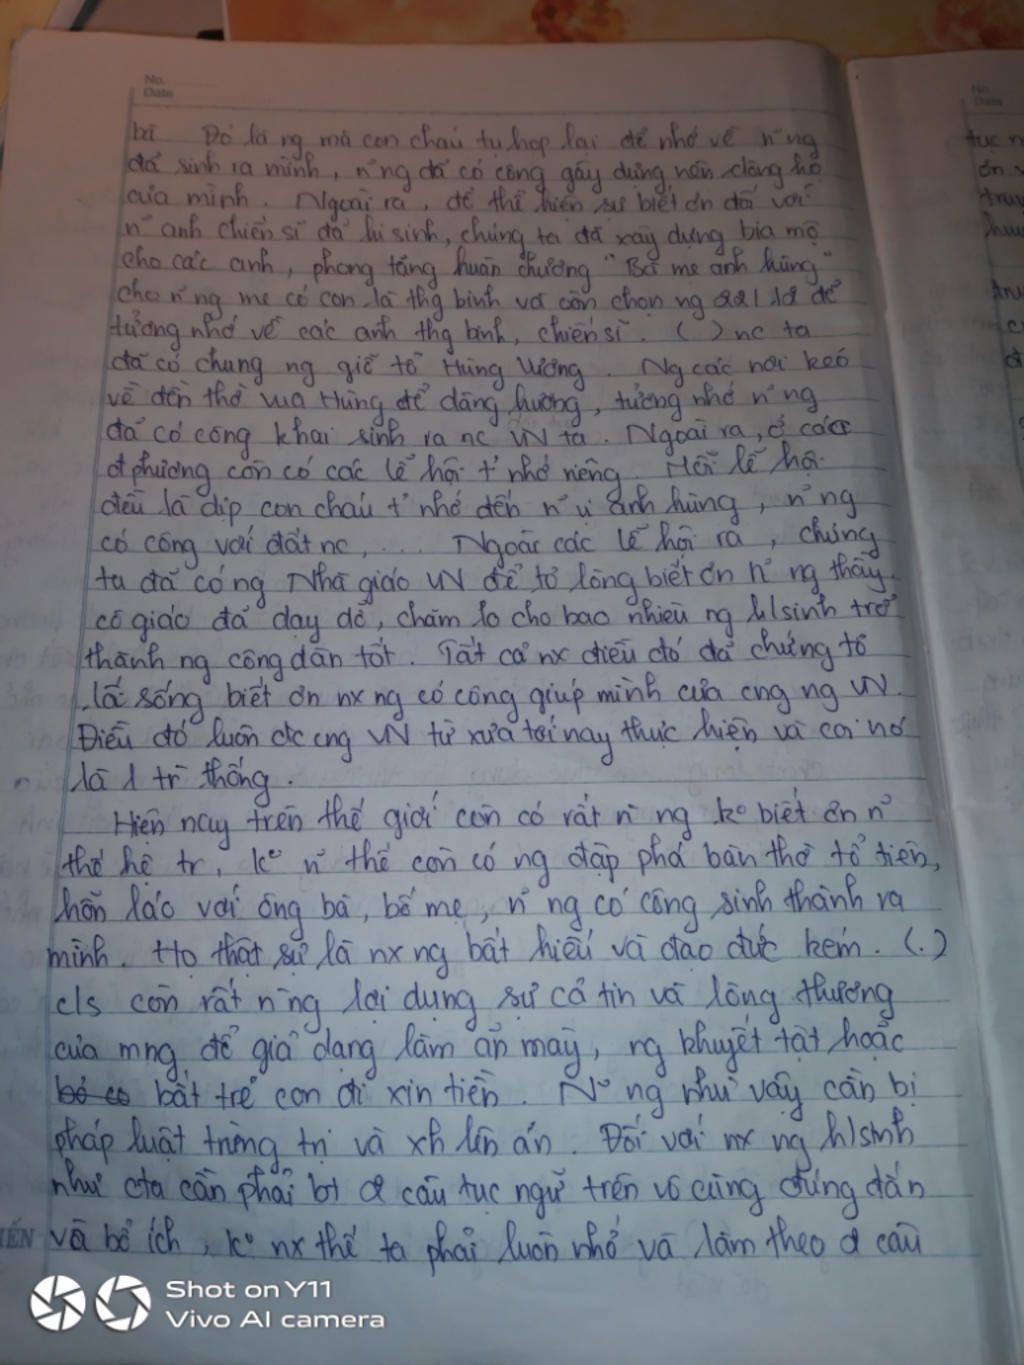 No.
Date
bì Đó là ng mà con cháu tụ họp lại để nhớ về n~ng
đã sinh ra mình, n~ng đã có công gây dựng nên dòng họ
của mình. Ngoài ra, để thể hiện sự biết ơn đối với
n~ anh chiến sĩ đã hi sinh, chúng ta đã xây dựng bia mộ
cho các anh, phong tặng huân chương "Bà mẹ anh hùng"
cho n~ng mẹ có con là thg binh và còn chọn ng 22/12 để
tưởng nhớ về các anh thg binh, chiến sĩ. ( ) nc ta
đã có chung ng giỗ tổ Hùng Vương. Ng các nơi kéo
về đền thờ vua Hùng để dâng hương, tưởng nhớ n~ng
đã có công khai sinh ra nc VN ta. Ngoài ra, ở các
đphương còn có các lễ hội t' nhớ riêng. Mỗi lễ hội
đều là dịp con cháu t' nhớ đến n~ vị anh hùng, n~ng
có công với đất nc, ... Ngoài các lễ hội ra, chúng
ta đã có ng Nhà giáo VN để tỏ lòng biết ơn n~ng thầy
cô giáo đã dạy dỗ, chăm lo cho bao nhiêu ng h/sinh trở
thành ng công dân tốt. Tất cả nx điều đó đã chứng tỏ
là sống biết ơn nx ng có công giúp mình của cng ng VN.
Điều đó luôn đc cng VN từ xưa tới nay thực hiện và coi nó
là 1 tr` thống.
Hiện nay trên thế giới còn có rất n` ng ko biết ơn n~
thế hệ tr', ko n~ thế còn có ng đập phá bàn thờ tổ tiên,
hỗn láo với ông bà, bố mẹ, n~ng có công sinh thành ra
mình. Họ thật sự là nx ng bất hiếu và đạo đức kém. (.)
c/s còn rất n`ng lợi dụng sự cả tin và lòng thương
của mng để giả dạng làm ăn mày, ng khuyết tật hoặc
bắt trẻ con đi xin tiền. N~ ng như vậy cần bị
pháp luật trừng trị và xh lên án. Đối với nx ng h/sinh
như cta cần phải bt đ câu tục ngữ trên vô cùng đúng đắn
và bổ ích, ko nx thế ta phải luôn nhớ và làm theo đ câu
Shot on Y11
Vivo AI camera